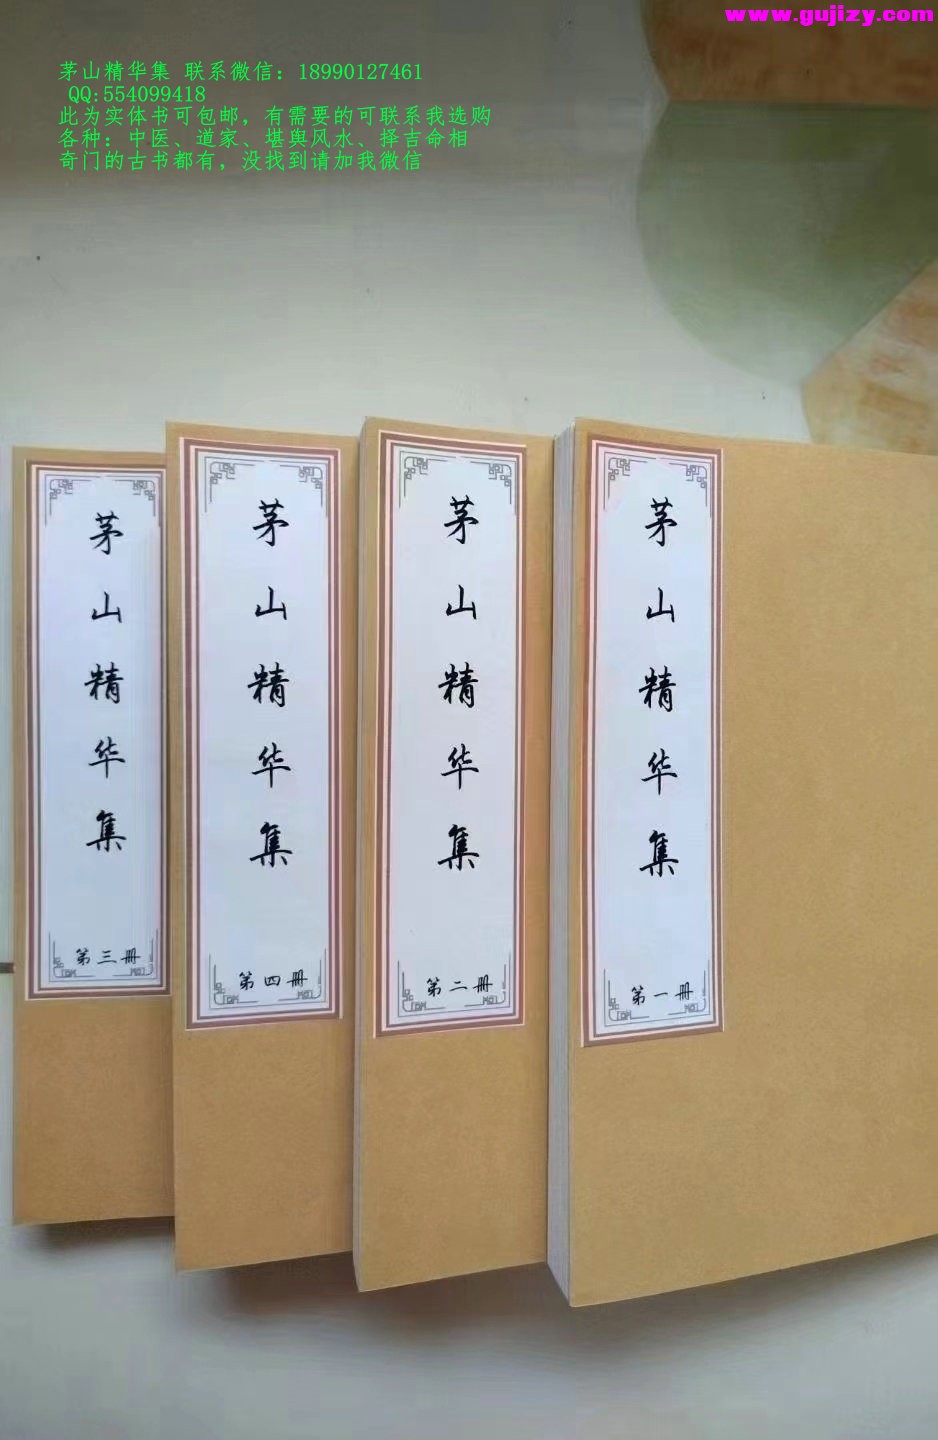 www.gujizy.com
茅山精华集 联系微信：18990127461
QQ:554099418
此为实体书可包邮，有需要的可联系我选购
各种：中医、道家、堪舆风水、择吉命相
奇门的古书都有，没找到请加我微信
茅山精华集
第三册
茅山精华集
第四册
茅山精华集
第二册
茅山精华集
第一册